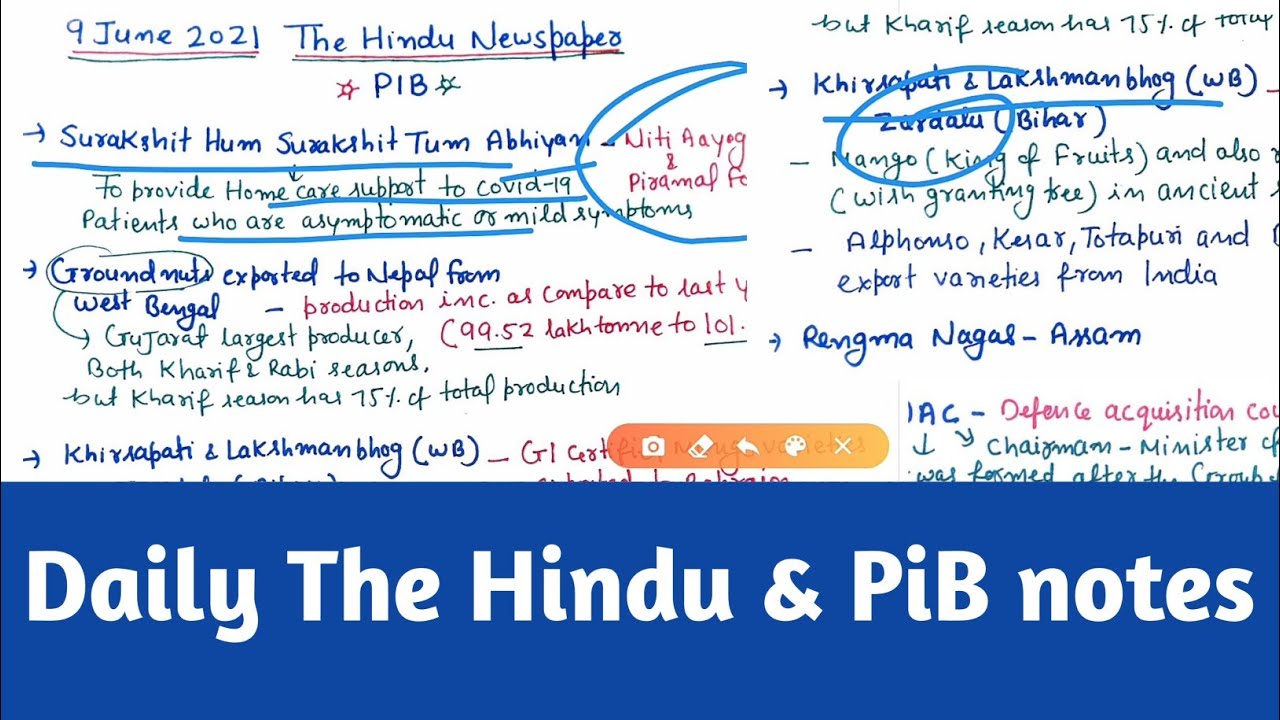 9 June 2021 The Hindu Newspaper
PIB
→ Surakshit Hum Surakshit Tum Abhiyan - Niti Aayog
&
Piramal
To provide Home care support to covid-19
Patients who are asymptomatic or mild symptoms
→ Groundnuts exported to Nepal from
West Bengal - production inc. as compare to last y
→ Gujarat largest producer, (99.52 lakh tonne to 101.
Both Kharif & Rabi seasons,
but Kharif season has 75% of total production
→ Khirsapati & Lakshmanbhog (WB) - GI
but Kharif season has 75% of total
→ Khirsapati & Lakshmanbhog (WB) -
Zardalu (Bihar)
- Mango (King of Fruits) and also
(wish granting tree) in ancient
- Alphonso, Kesar, Totapuri and
export varieties from India
→ Rengma Nagas - Assam
DAC - Defence acquisition cou
Chairman - Minister of
was formed after the
Daily The Hindu & PiB notes